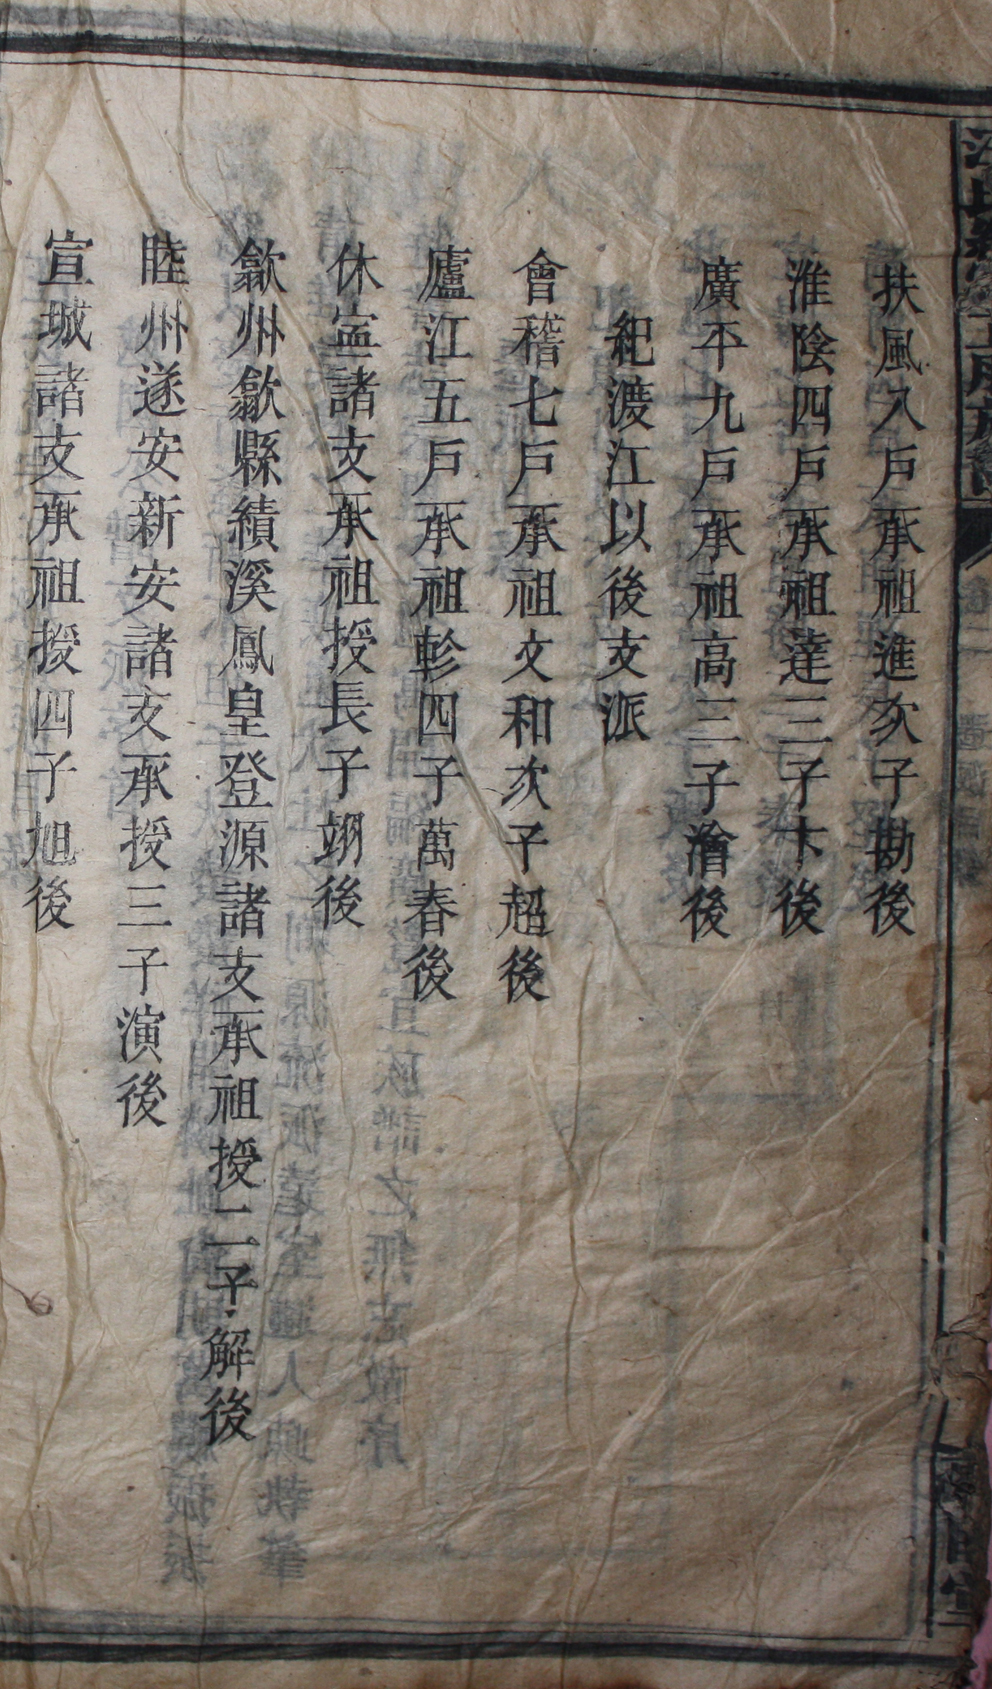 扶風八戶承祖進次子勘後
淮陰四戶承祖達三子卞後
廣平九戶承祖高三子澮後
紀渡江以後支派
會稽七戶承祖文和次子超後
廬江五戶承祖軫四子萬春後
休寍諸支承祖授長子翊後
歙州歙縣績溪鳳皇登源諸支承祖授二子解後
睦州遂安新安諸支承授三子演後
宣城諸支承祖授四子旭後